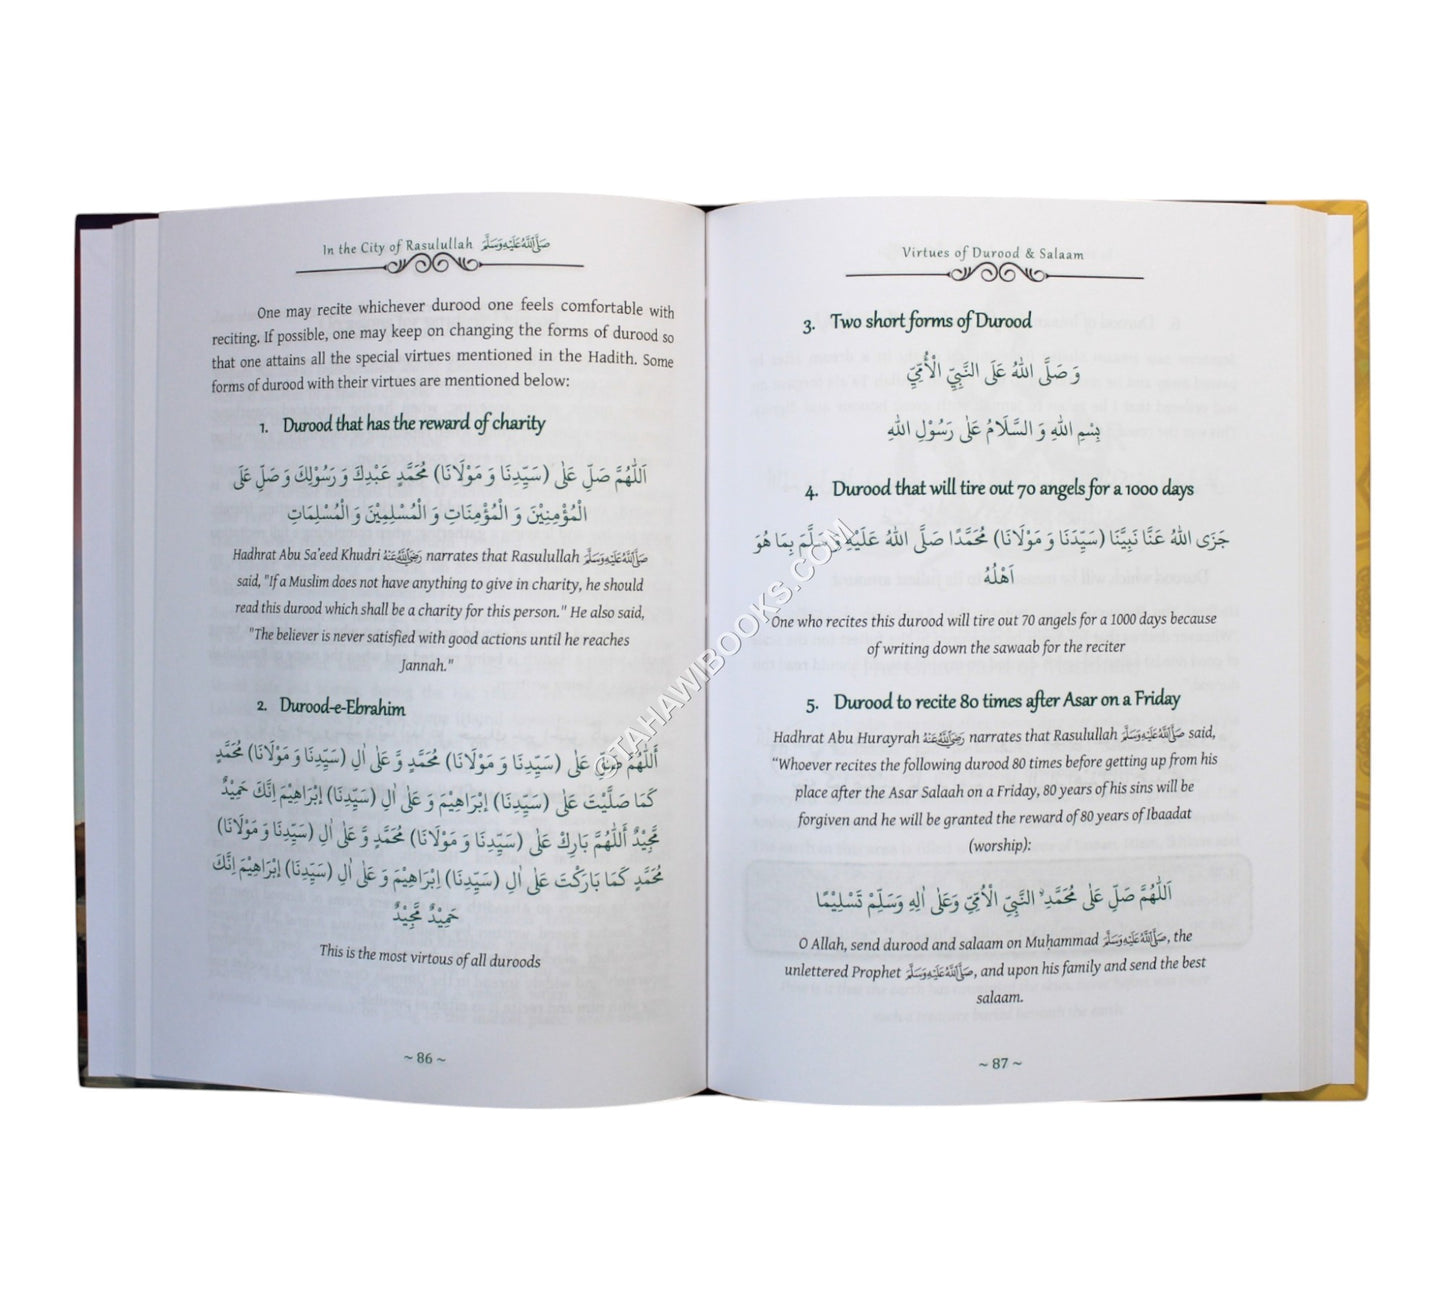 In the City of Rasulullah صَلَّى اللهُ عَلَيْهِ وَسَلَّمَ
One may recite whichever durood one feels comfortable with
reciting. If possible, one may keep on changing the forms of durood so
that one attains all the special virtues mentioned in the Hadith. Some
forms of durood with their virtues are mentioned below:
1. Durood that has the reward of charity
اَللّٰهُمَّ صَلِّ عَلٰى (سَيِّدِنَا وَ مَوْلَانَا) مُحَمَّدٍ عَبْدِكَ وَ رَسُوْلِكَ وَ صَلِّ عَلَى
الْمُؤْمِنِيْنَ وَ الْمُؤْمِنَاتِ وَ الْمُسْلِمِيْنَ وَ الْمُسْلِمَاتِ
Hadhrat Abu Sa'eed Khudri رَضِيَ اللهُ عَنْهُ narrates that Rasulullah صَلَّى اللهُ عَلَيْهِ وَسَلَّمَ
said, "If a Muslim does not have anything to give in charity, he should
read this durood which shall be a charity for this person." He also said,
"The believer is never satisfied with good actions until he reaches
Jannah."
2. Durood-e-Ebrahim
أَللّٰهُمَّ صَلِّ عَلٰى (سَيِّدِنَا وَ مَوْلَانَا) مُحَمَّدٍ وَّ عَلٰى اٰلِ (سَيِّدِنَا وَ مَوْلَانَا) مُحَمَّدٍ
كَمَا صَلَّيْتَ عَلٰى (سَيِّدِنَا) اِبْرَاهِيْمَ وَ عَلٰى اٰلِ (سَيِّدِنَا) اِبْرَاهِيْمَ اِنَّكَ حَمِيْدٌ
مَّجِيْدٌ أَللّٰهُمَّ بَارِكْ عَلٰى (سَيِّدِنَا وَ مَوْلَانَا) مُحَمَّدٍ وَّ عَلٰى اٰلِ (سَيِّدِنَا وَ مَوْلَانَا)
مُحَمَّدٍ كَمَا بَارَكْتَ عَلٰى اٰلِ (سَيِّدِنَا) اِبْرَاهِيْمَ وَ عَلٰى اٰلِ (سَيِّدِنَا) اِبْرَاهِيْمَ اِنَّكَ
حَمِيْدٌ مَّجِيْدٌ
This is the most virtous of all duroods
~ 86 ~
Virtues of Durood & Salaam
3. Two short forms of Durood
وَ صَلَّى اللّٰهُ عَلَى النَّبِيِّ الْأُمِّيِّ
بِسْمِ اللّٰهِ وَ السَّلَامُ عَلٰى رَسُوْلِ اللّٰهِ
4. Durood that will tire out 70 angels for a 1000 days
جَزَى اللّٰهُ عَنَّا نَبِيَّنَا (سَيِّدَنَا وَ مَوْلَانَا) مُحَمَّدًا صَلَّى اللّٰهُ عَلَيْهِ وَسَلَّمَ بِمَا هُوَ
اَهْلُهُ
One who recites this durood will tire out 70 angels for a 1000 days because
of writing down the sawaab for the reciter
5. Durood to recite 80 times after Asar on a Friday
Hadhrat Abu Hurayrah رَضِيَ اللهُ عَنْهُ narrates that Rasulullah صَلَّى اللهُ عَلَيْهِ وَسَلَّمَ said,
“Whoever recites the following durood 80 times before getting up from his
place after the Asar Salaah on a Friday, 80 years of his sins will be
forgiven and he will be granted the reward of 80 years of Ibaadat
(worship):
اَللّٰهُمَّ صَلِّ عَلٰى مُحَمَّدِ ۨالنَّبِيِّ الْاُمِّيِّ وَعَلٰى اٰلِهٖ وَسَلِّمْ تَسْلِيْمًا
O Allah, send durood and salaam on Muḥammad صَلَّى اللهُ عَلَيْهِ وَسَلَّمَ, the
unlettered Prophet صَلَّى اللهُ عَلَيْهِ وَسَلَّمَ, and upon his family and send the best
salaam.
~ 87 ~
©TAHAWIBOOKS.COM